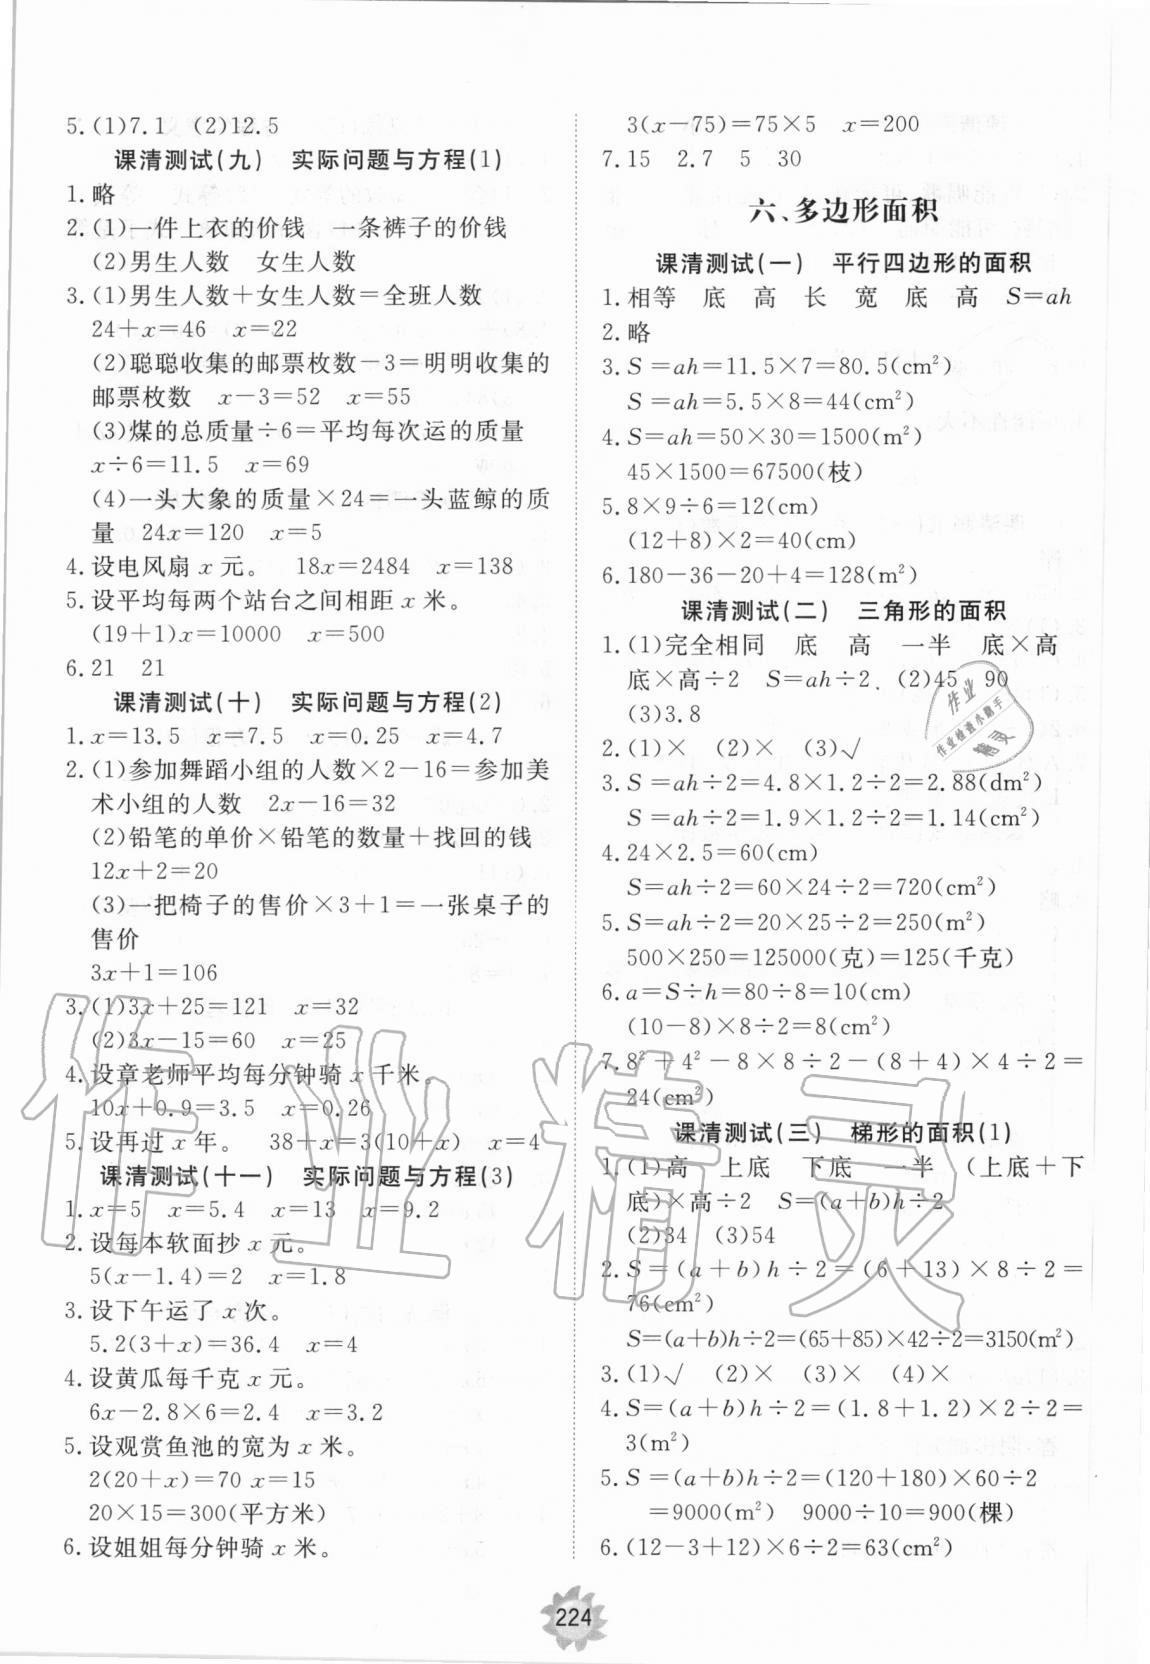 5.(1)7.1 (2)12.5
课清测试(九) 实际问题与方程(1)
1.略
2.(1)一件上衣的价钱 一条裤子的价钱
(2)男生人数 女生人数
3.(1)男生人数+女生人数=全班人数
24+x=46 x=22
(2)聪聪收集的邮票枚数-3=明明收集的
邮票枚数 x-3=52 x=55
(3)煤的总质量÷6=平均每次运的质量
x÷6=11.5 x=69
(4)一头大象的质量×24=一头蓝鲸的质
量 24x=120 x=5
4.设电风扇x元。 18x=2484 x=138
5.设平均每两个站台之间相距x米。
(19+1)x=10000 x=500
6.21 21
课清测试(十) 实际问题与方程(2)
1.x=13.5 x=7.5 x=0.25 x=4.7
2.(1)参加舞蹈小组的人数×2-16=参加美
术小组的人数 2x-16=32
(2)铅笔的单价×铅笔的数量+找回的钱
12x+2=20
(3)一把椅子的售价×3+1=一张桌子的
售价
3x+1=106
3.(1)3x+25=121 x=32
(2)3x-15=60 x=25
4.设章老师平均每分钟骑x千米。
10x+0.9=3.5 x=0.26
5.设再过x年。 38+x=3(10+x) x=4
课清测试(十一) 实际问题与方程(3)
1.x=5 x=5.4 x=13 x=9.2
2.设每本软面抄x元。
5(x-1.4)=2 x=1.8
3.设下午运了x次。
5.2(3+x)=36.4 x=4
4.设黄瓜每千克x元。
6x-2.8×6=2.4 x=3.2
5.设观赏鱼池的宽为x米。
2(20+x)=70 x=15
20×15=300(平方米)
6.设姐姐每分钟骑x米。
3(x-75)=75×5 x=200
7.15 2.7 5 30
六、多边形面积
课清测试(一) 平行四边形的面积
1.相等 底 高 长 宽 底 高 S=ah
2.略
3.S=ah=11.5×7=80.5(cm²)
S=ah=5.5×8=44(cm²)
4.S=ah=50×30=1500(m²)
45×1500=67500(枝)
5.8×9÷6=12(cm)
(12+8)×2=40(cm)
6.180-36-20+4=128(m²)
课清测试(二) 三角形的面积
1.(1)完全相同 底 高 一半 底×高
底×高÷2 S=ah÷2. (2)45 90
(3)3.8
2.(1)× (2)× (3)√
3.S=ah÷2=4.8×1.2÷2=2.88(dm²)
S=ah÷2=1.9×1.2÷2=1.14(cm²)
4.24×2.5=60(cm)
S=ah÷2=60×24÷2=720(cm²)
5.S=ah÷2=20×25÷2=250(m²)
500×250=125000(克)=125(千克)
6.a=S÷h=80÷8=10(cm)
(10-8)×8÷2=8(cm²)
7.8²+4²-8×8÷2-(8+4)×4÷2=
24(cm²)
课清测试(三) 梯形的面积(1)
1.(1)高 上底 下底 一半 (上底+下
底)×高÷2 S=(a+b)h÷2
(2)34 (3)54
2.S=(a+b)h÷2=(6+13)×8÷2=
76(cm²)
S=(a+b)h÷2=(65+85)×42÷2=3150(m²)
3.(1)√ (2)× (3)× (4)×
4.S=(a+b)h÷2=(1.8+1.2)×2÷2=
3(m²)
5.S=(a+b)h÷2=(120+180)×60÷2
=9000(m²) 9000÷10=900(棵)
6.(12-3+12)×6÷2=63(cm²)
作业
作业检查小助手
精灵
作业精灵
224